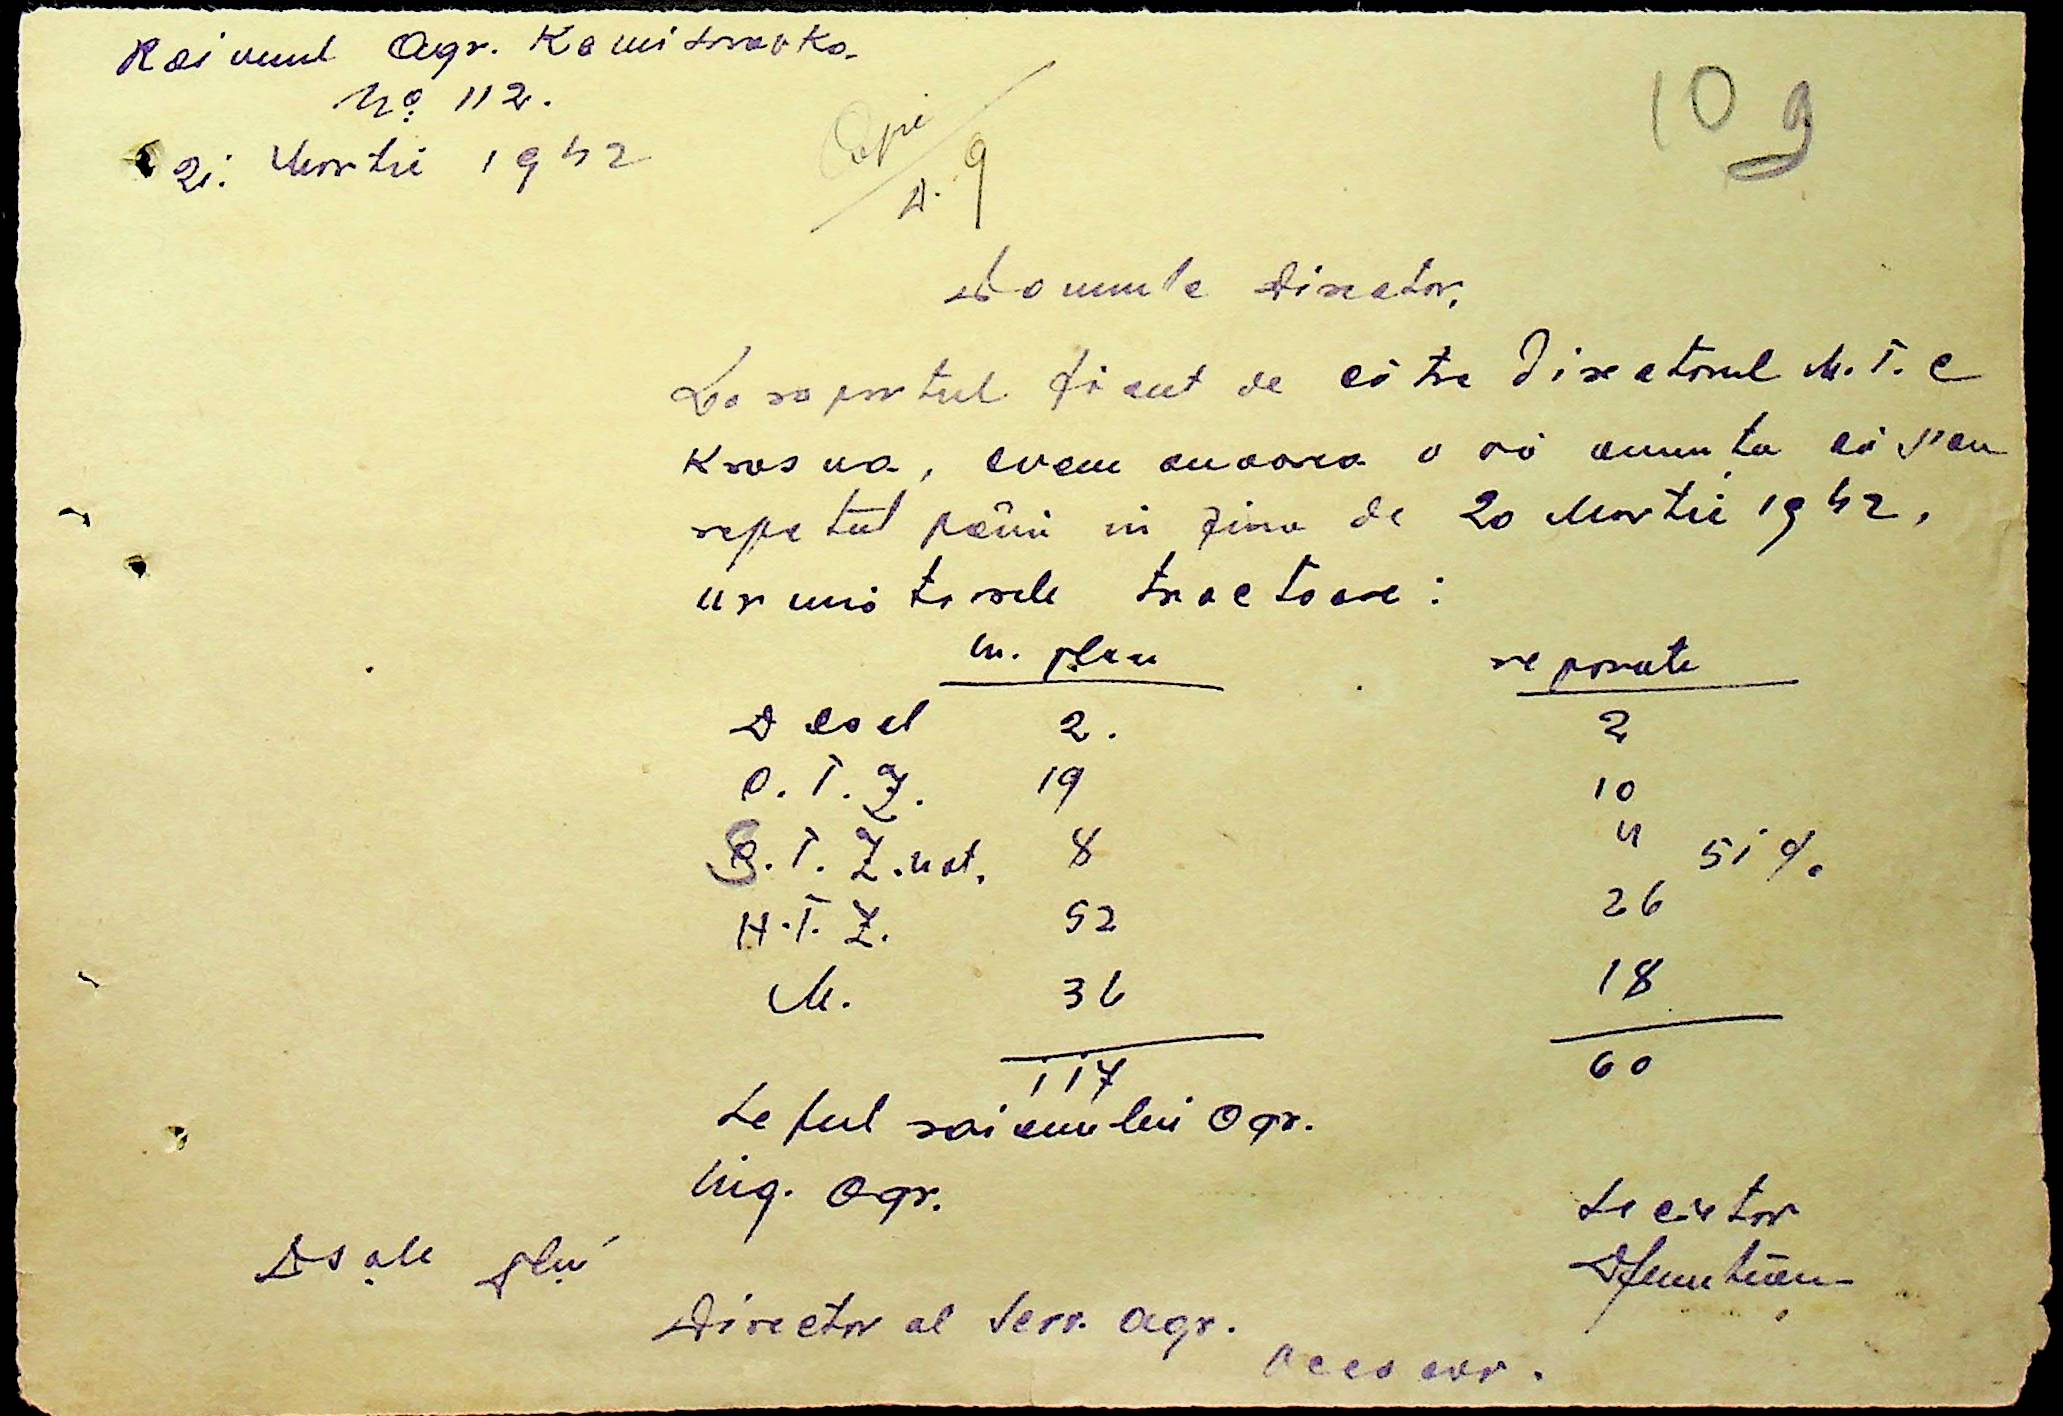 Raionul Agr. Kamisovako.
No. 112.
21. Martie 1942
Copi
D. 9
10 9
Domnule Director,
La raportul făcut de către Directorul M.T.C
Krasna, avem onoarea a vă anunța că s'au
reparat până în ziua de 20 Martie 1942,
următoarele tractoare:
in. plan reparate
Diesel 2. 2
C.T.Z. 19 10
S.T.Z. nat. 8 4 51%
H.T.Z. 52 26
M. 36 18
117 60
Șeful raionului Agr.
Ing. Agr.
Secretar
D sale
Director al Serv. Agr.